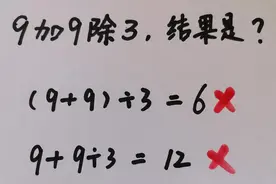 9加9除3，结果是？
(9+9)÷3 = 6 ×
9+9÷3 = 12 ×